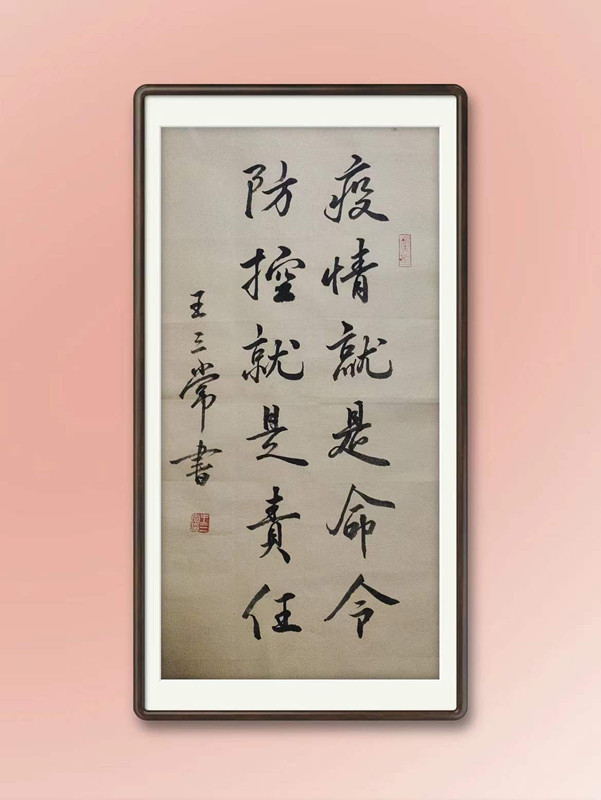 疫情就是命令
防控就是責任
王三常書